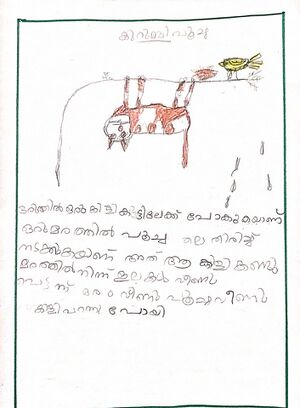 കുറിഞ്ഞിപൂച്ച
ഒരു കിളി കൂട്ടിലേക്ക് പോകുകയാണ്
ഒരു മരത്തിൽ പൂച്ച തല തിരിച്ച്
നടക്കുകയാണ് അത് ആ കിളി കണ്ടു
മരത്തിൽ നിന്ന് ഇലകൾ വീണു
പെട്ടന്ന് മരം വീണു പൂച്ചവീണു
കിളി പറന്നു പോയി